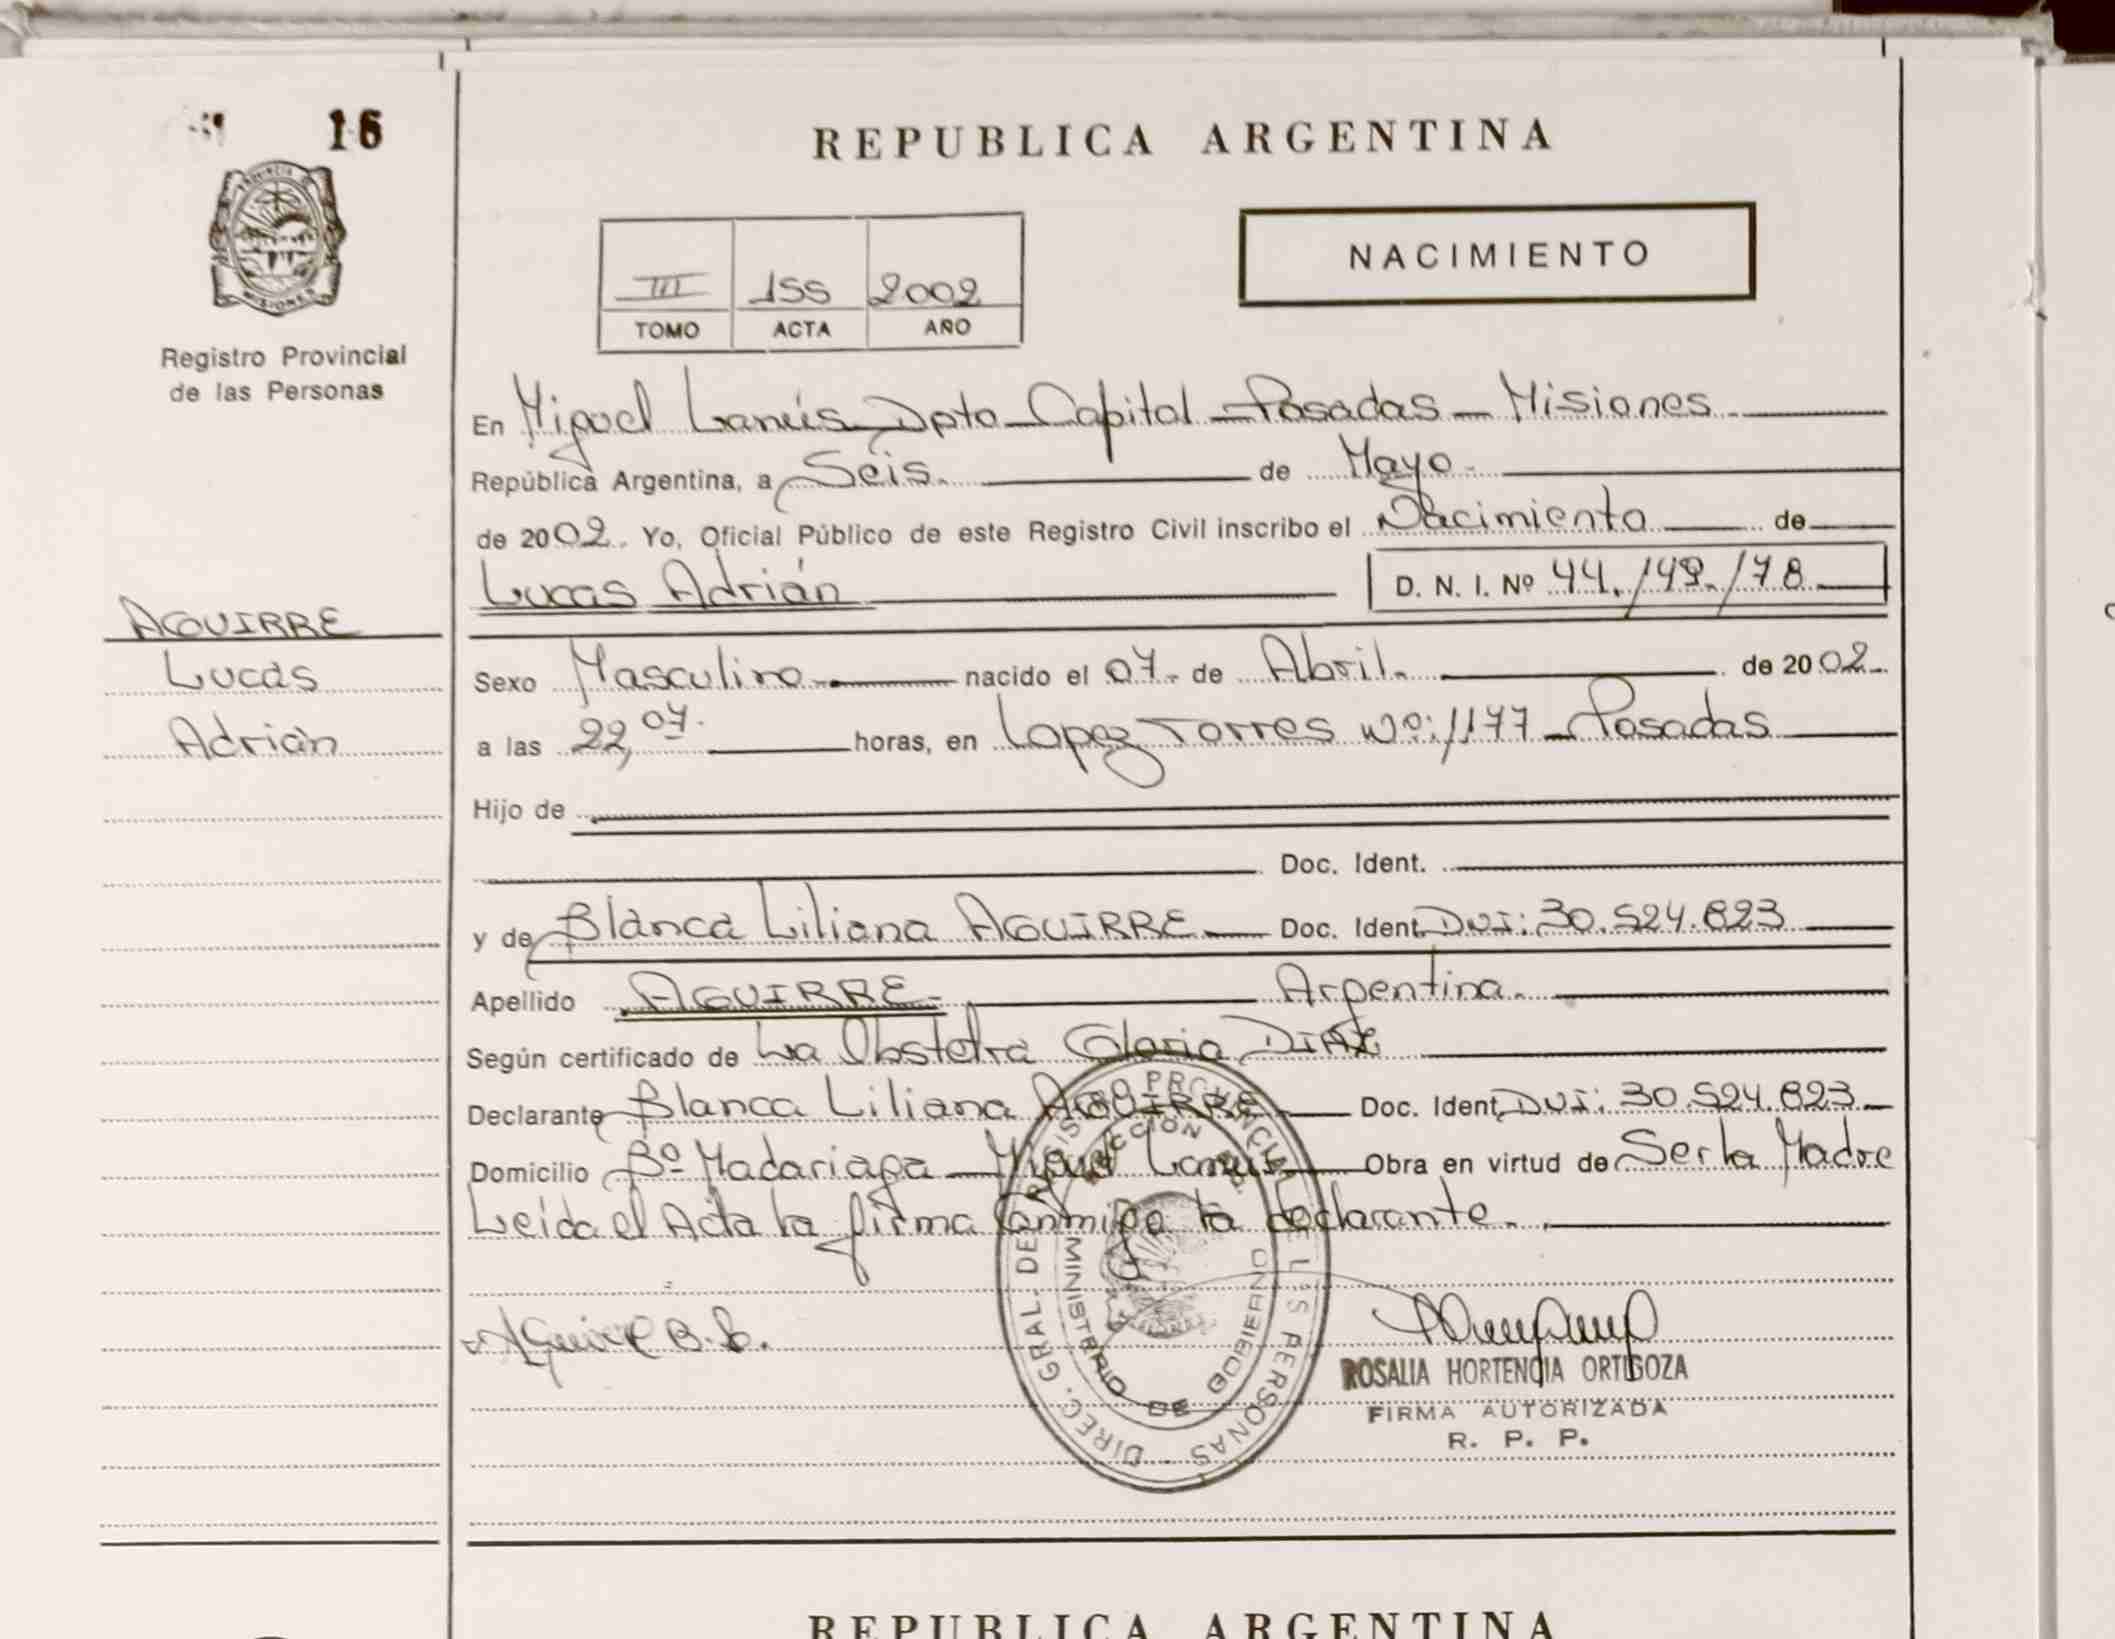 16
REPUBLICA ARGENTINA
NACIMIENTO
III 155 2002
TOMO ACTA AÑO
Registro Provincial
de las Personas
En Miguel Lanús Dpto Capital - Posadas - Misiones
República Argentina, a Seis. de Mayo.
de 2002. Yo, Oficial Público de este Registro Civil inscribo el Nacimiento de
Lucas Adrián D. N. I. Nº 44./149./78
AGUIRRE
Lucas
Adrián
Sexo Masculino nacido el 07. de Abril. de 2002.
a las 22,07. horas, en Lopez Torres Nº: 1177 - Posadas
Hijo de
Doc. Ident.
y de Blanca Liliana AGUIRRE Doc. Ident. DNI: 30.524.823
Apellido AGUIRRE Argentina.
Según certificado de La Obstetra Gloria DIAZ
Declarante Blanca Liliana AGUIRRE Doc. Ident. DNI: 30.524.823
Domicilio Bº Madariaga - Miguel Lanus Obra en virtud de Ser la Madre
Leida el Acta la firma Conmigo la declarante.
Aguirre B. L.
DIREC. GRAL. DE REGISTRO PROVINCIAL DE LAS PERSONAS
MINISTERIO DE GOBIERNO
ROSALIA HORTENCIA ORTIGOZA
FIRMA AUTORIZADA
R. P. P.
REPUBLICA ARGENTINA